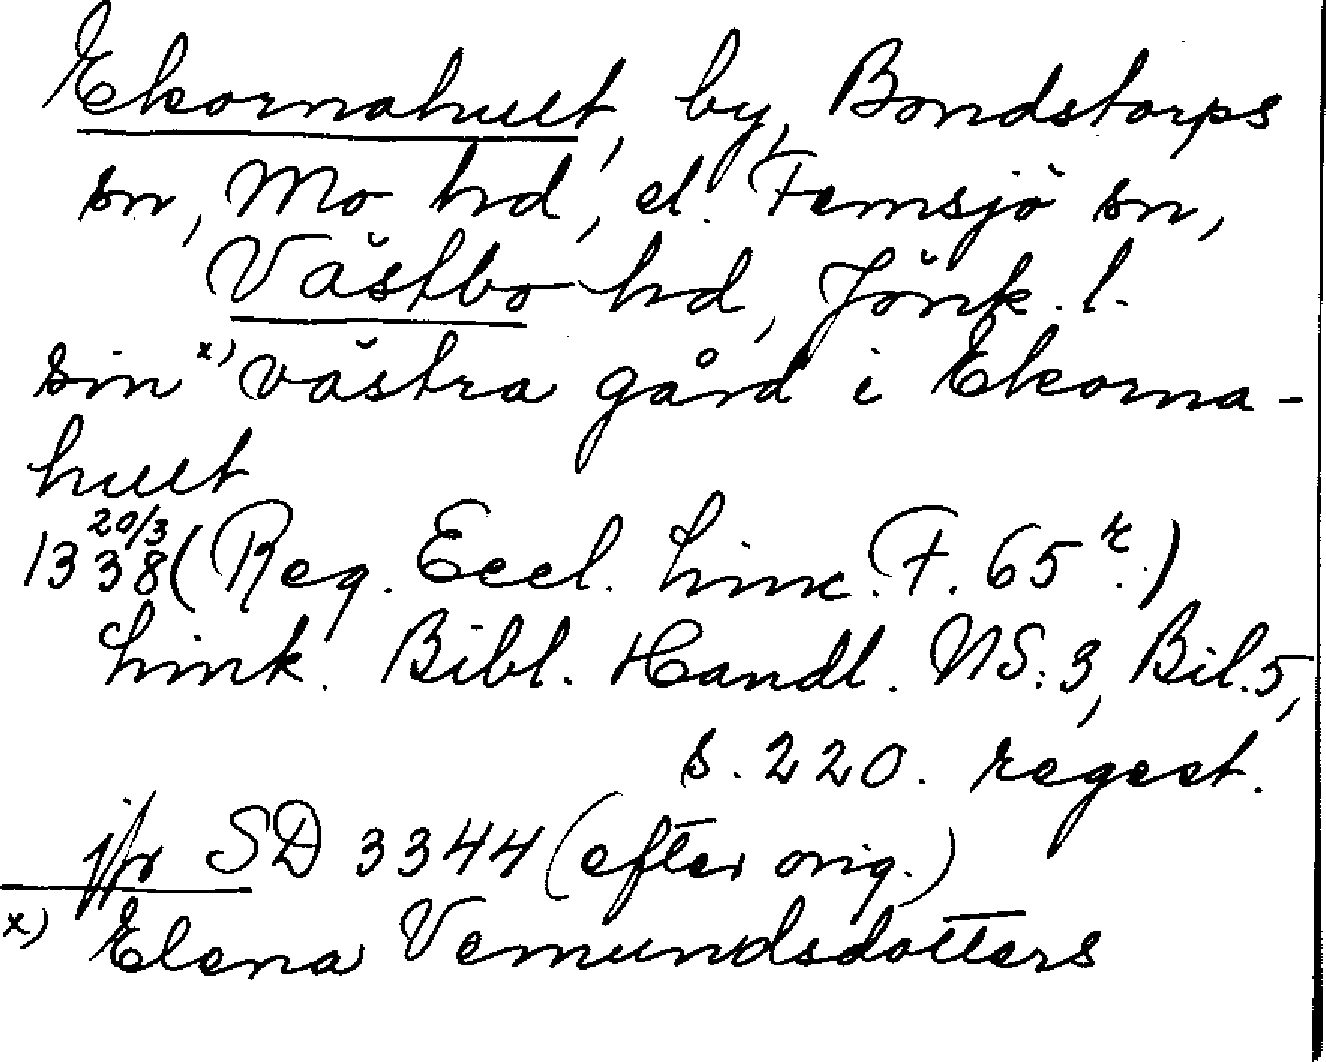 Ekornahult, by, Bondstorps
sn, Mo hd, el. Femsjö sn,
Västbo hd, Jönk. l.
sin x) västra gård i Ekorna-
hult
1338 20/3 (Reg. Eccl. Linc. F. 65 r.)
Link. Bibl. Handl. NS: 3, Bil. 5,
s. 220. regest.
jfr SD 3344 (efter orig.)
x) Elena Vemundsdotters